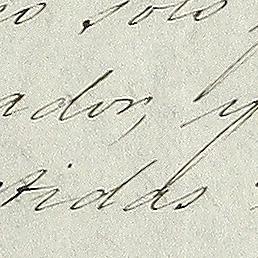 o solo
ador, y
tidas